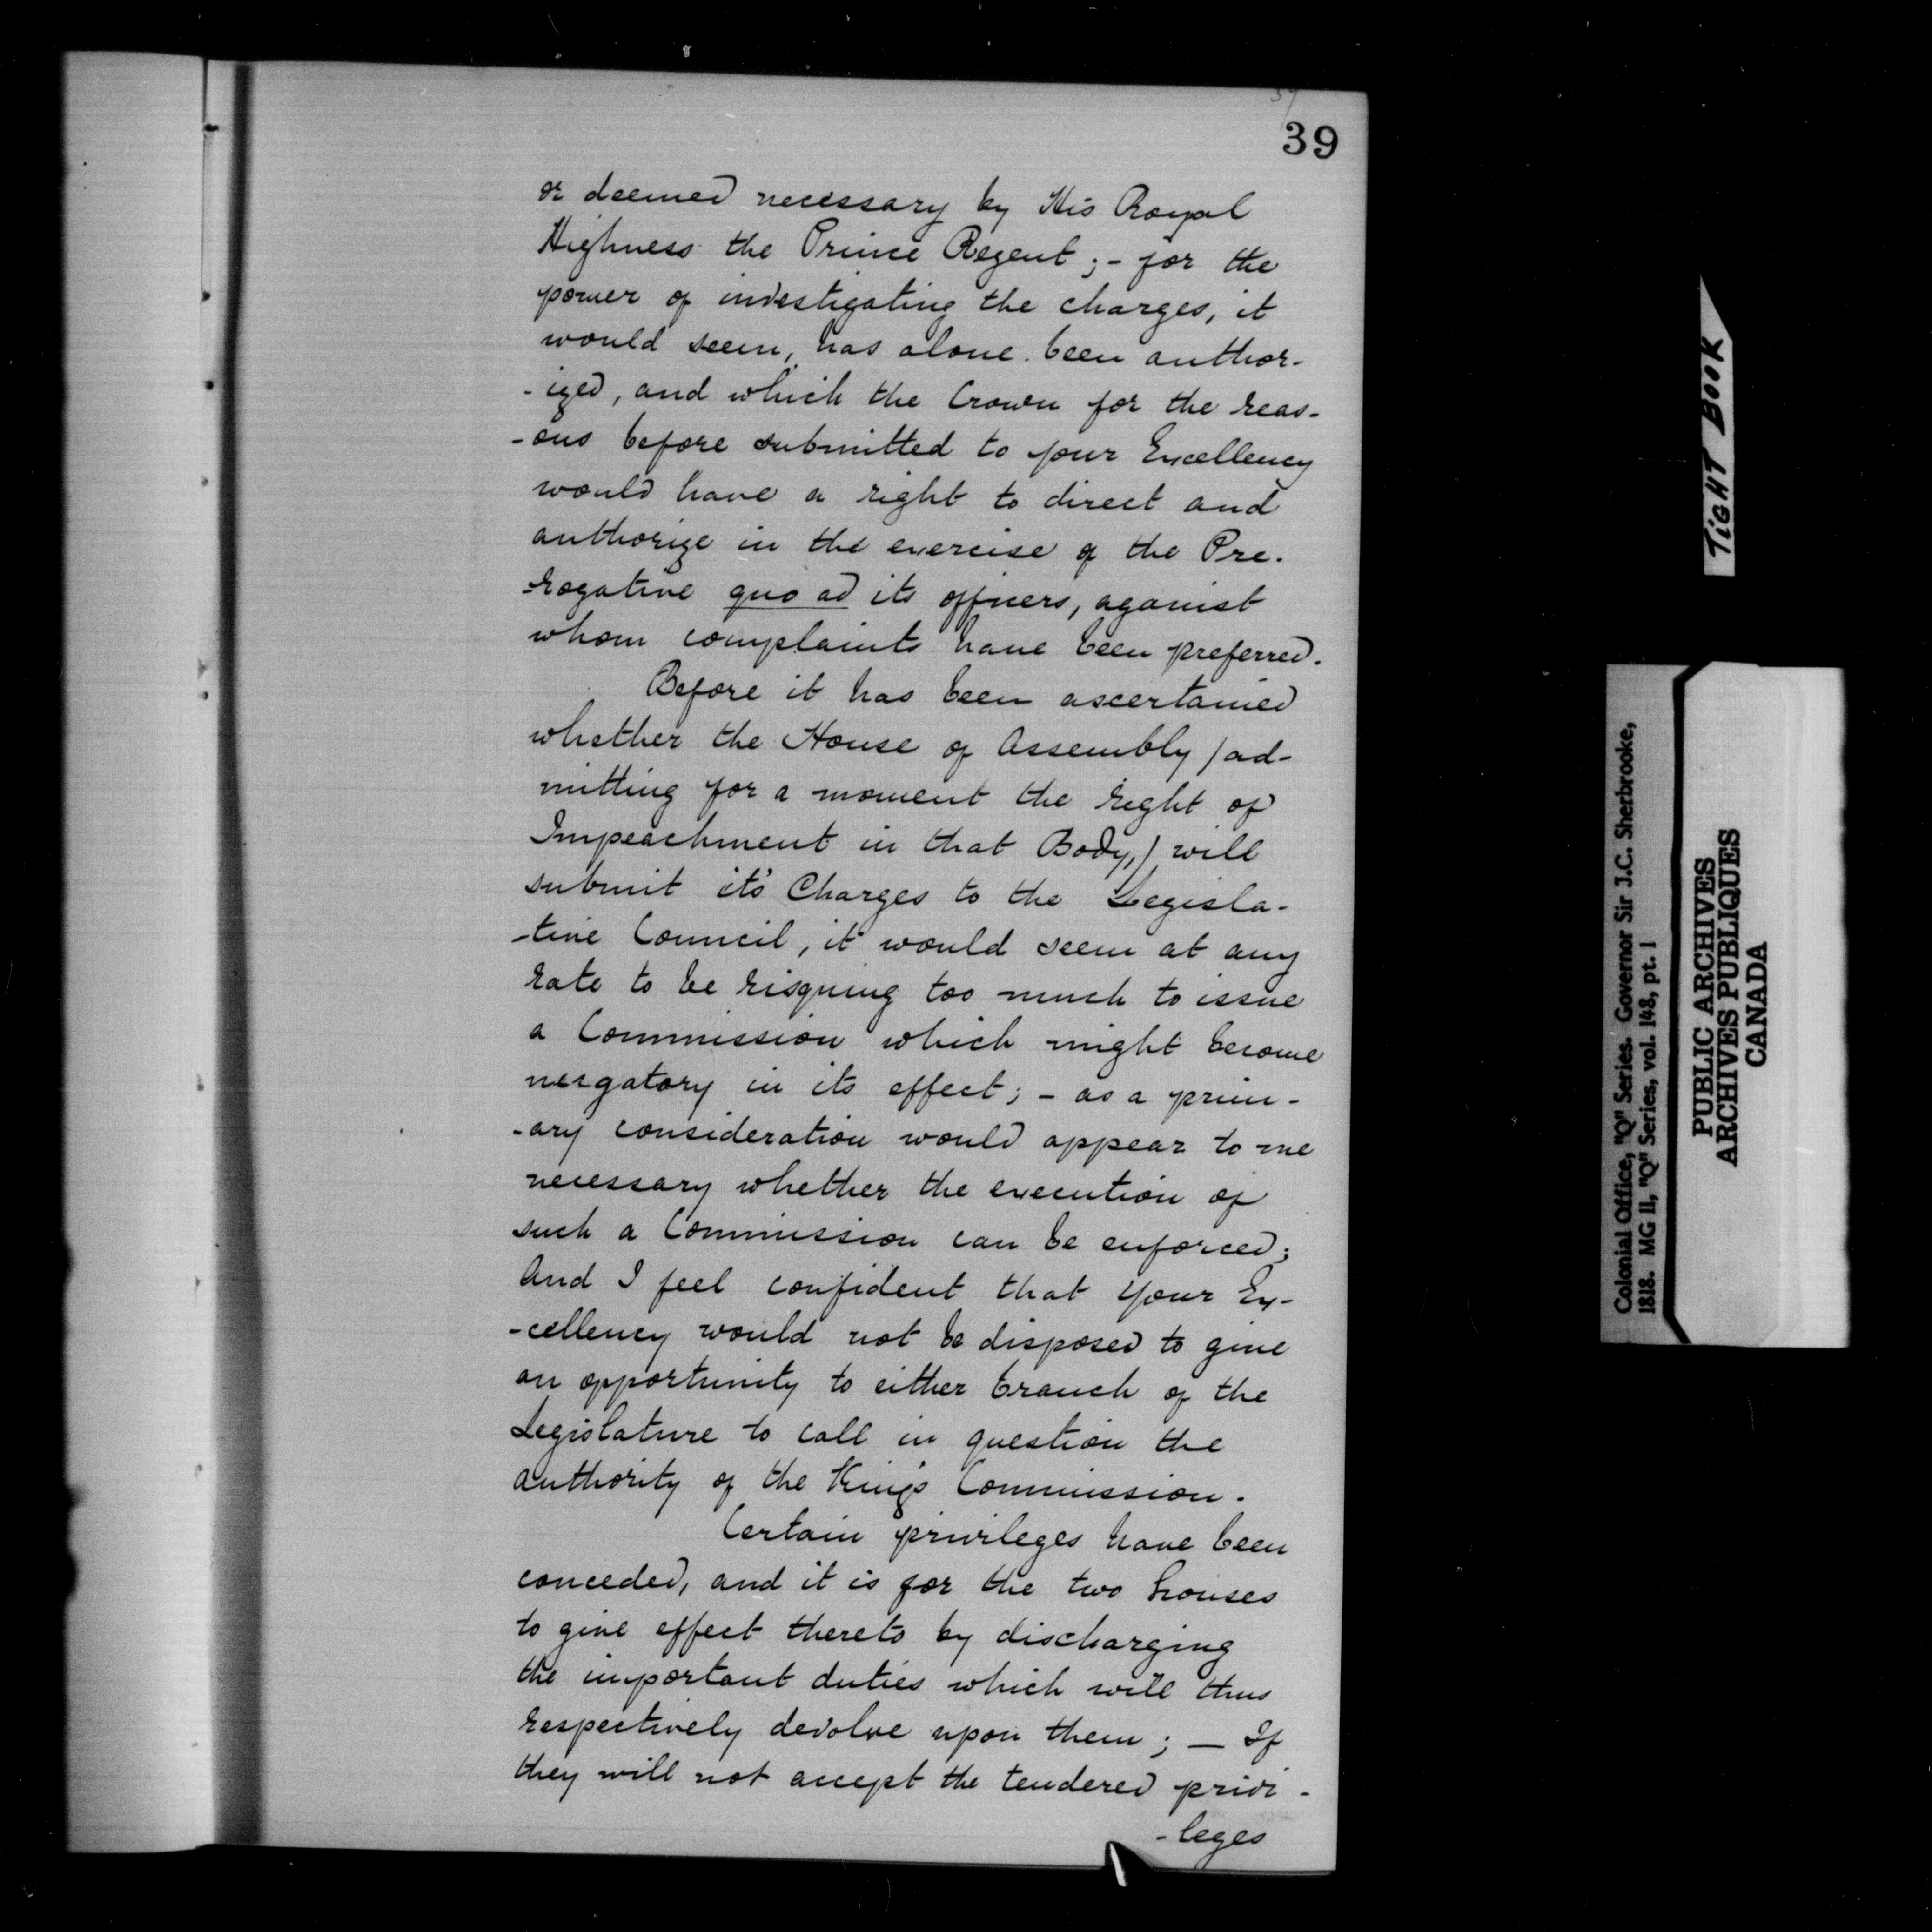 37
39
or deemed necessary by His Royal
Highness the Prince Regent; - for the
power of investigating the charges, it
would seem, has alone been author-
-ized, and which the Crown for the reas-
-ons before submitted to your Excellency
would have a right to direct and
authorize in the exercise of the Pre-
-rogative quo ad its officers, against
whom complaints have been preferred.
Before it has been ascertained
whether the House of Assembly /ad-
mitting for a moment the right of
Impeachment in that Body,/ will
submit it's Charges to the Legisla-
-tive Council, it would seem at any
rate to be risquing too much to issue
a Commission which might become
nugatory in its effect; - as a prim-
-ary consideration would appear to me
necessary whether the execution of
such a Commission can be enforced;
And I feel confident that Your Ex-
-cellency would not be disposed to give
an opportunity to either branch of the
Legislature to call in question the
authority of the King's Commission.
Certain privileges have been
conceded, and it is for the two houses
to give effect thereto by discharging
the important duties which will thus
respectively devolve upon them; - If
they will not accept the tendered privi-
-leges
TiGHT BOOK
Colonial Office, "Q" Series. Governor Sir J.C. Sherbrooke,
1818. MG 11, "Q" Series, vol. 148, pt. 1
PUBLIC ARCHIVES
ARCHIVES PUBLIQUES
CANADA